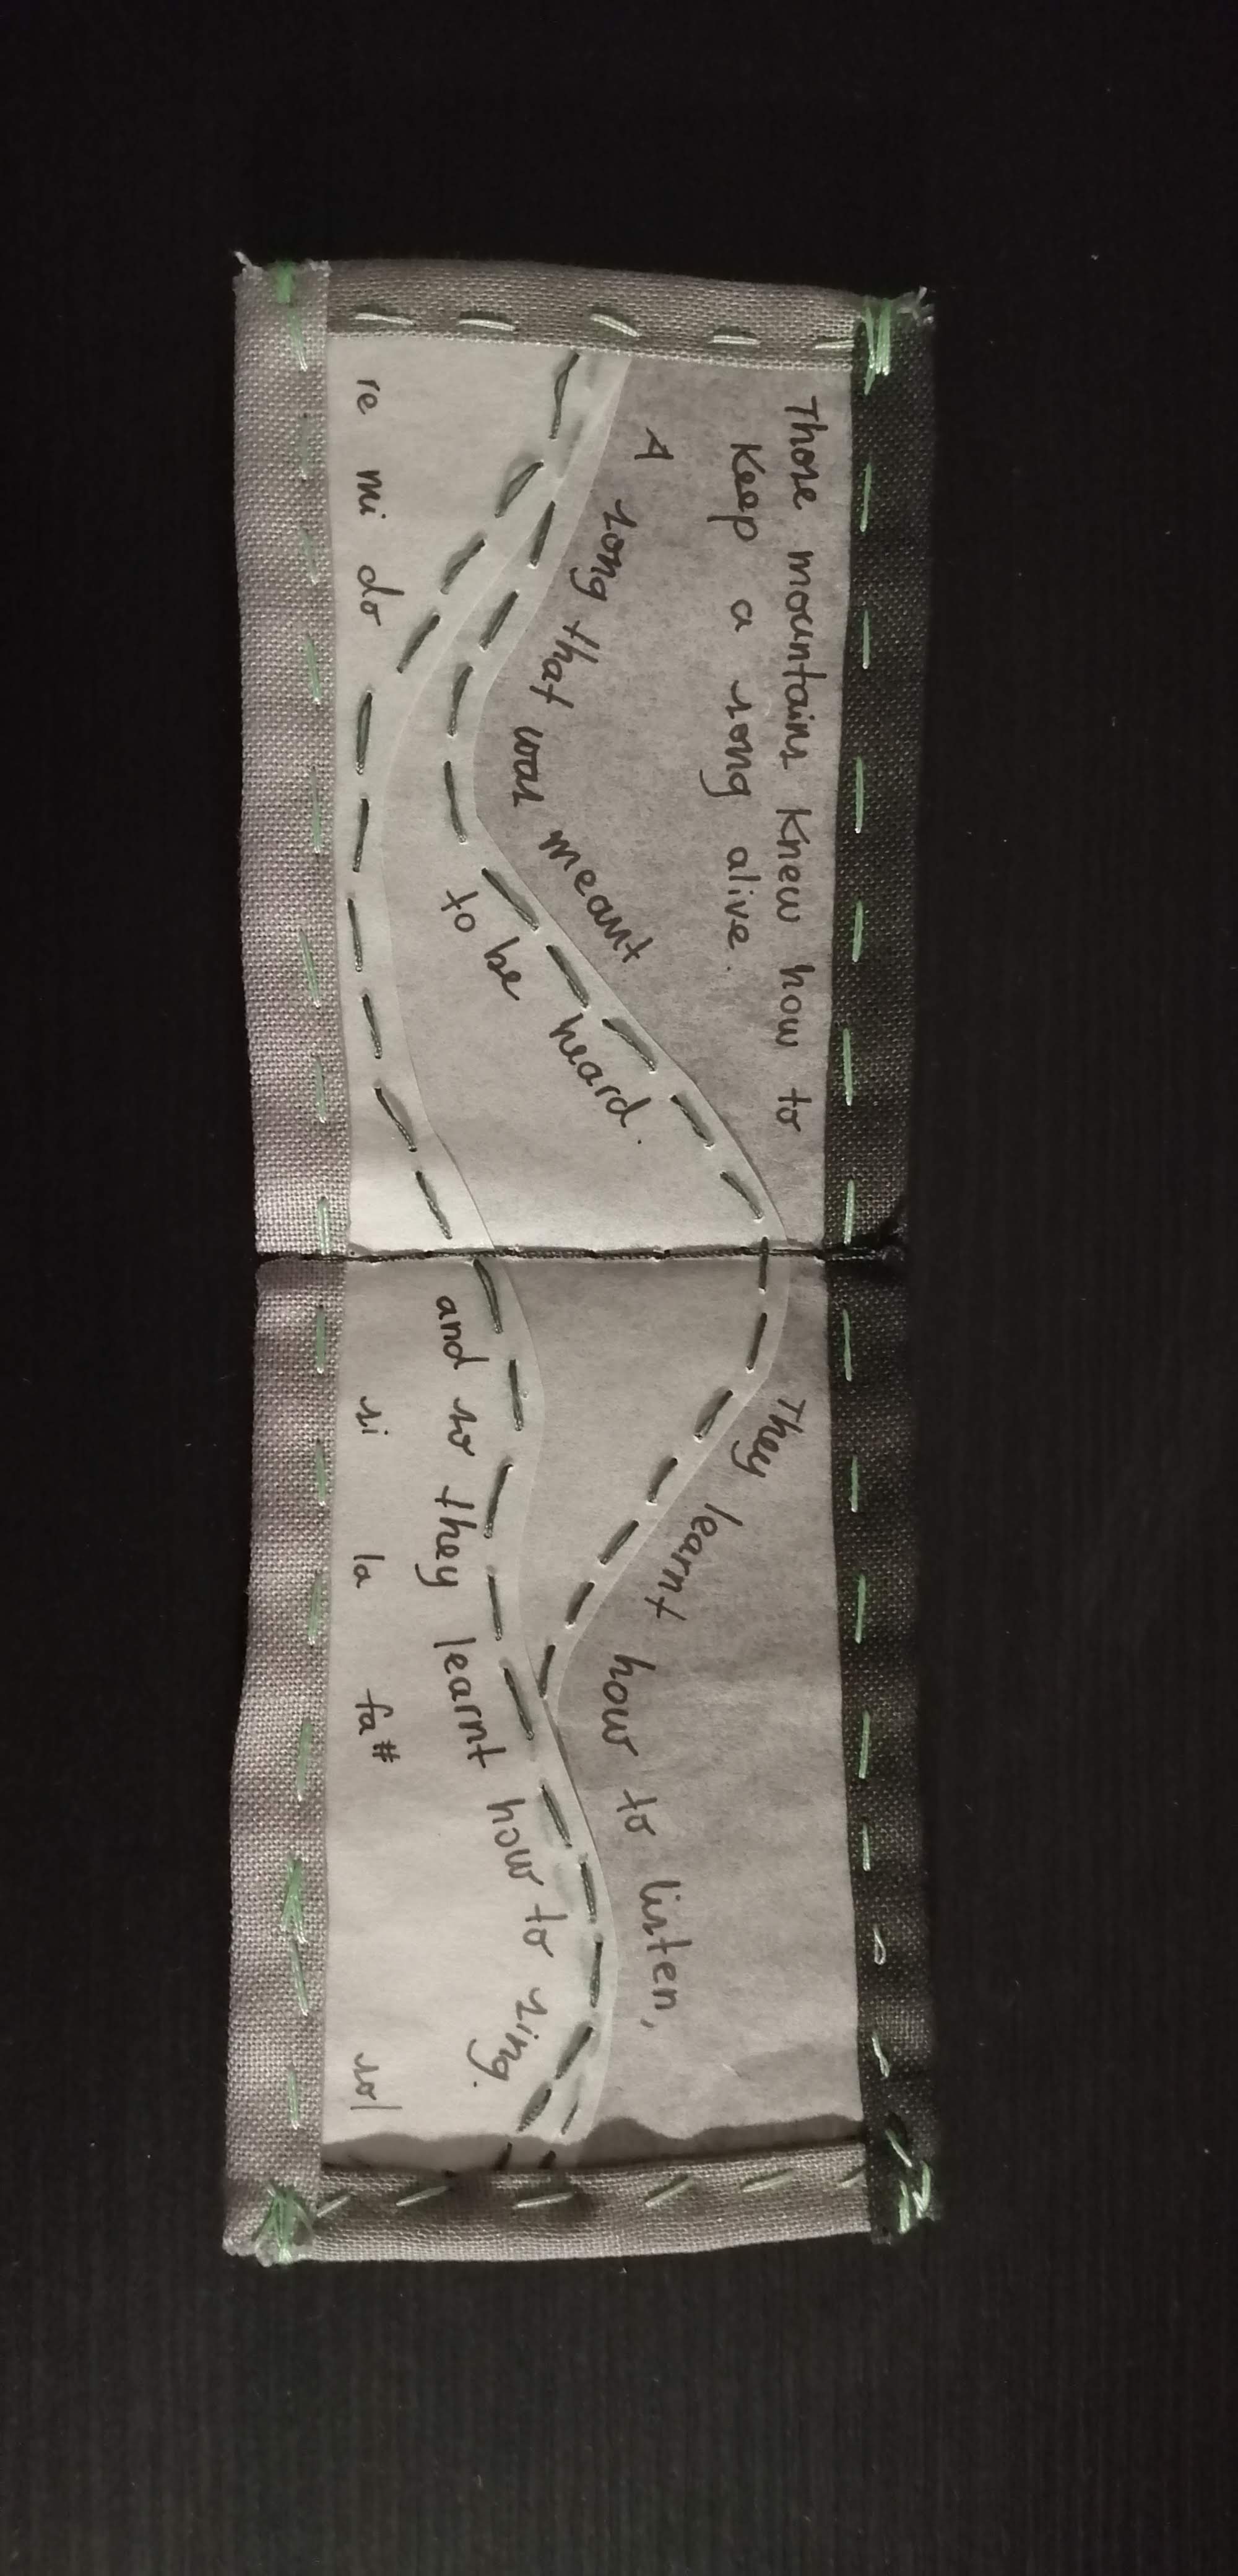 Those mountains knew how to
keep a song alive.
A song that was meant
to be heard.
re mi do
They learnt how to listen,
and so they learnt how to sing.
si la fa# sol